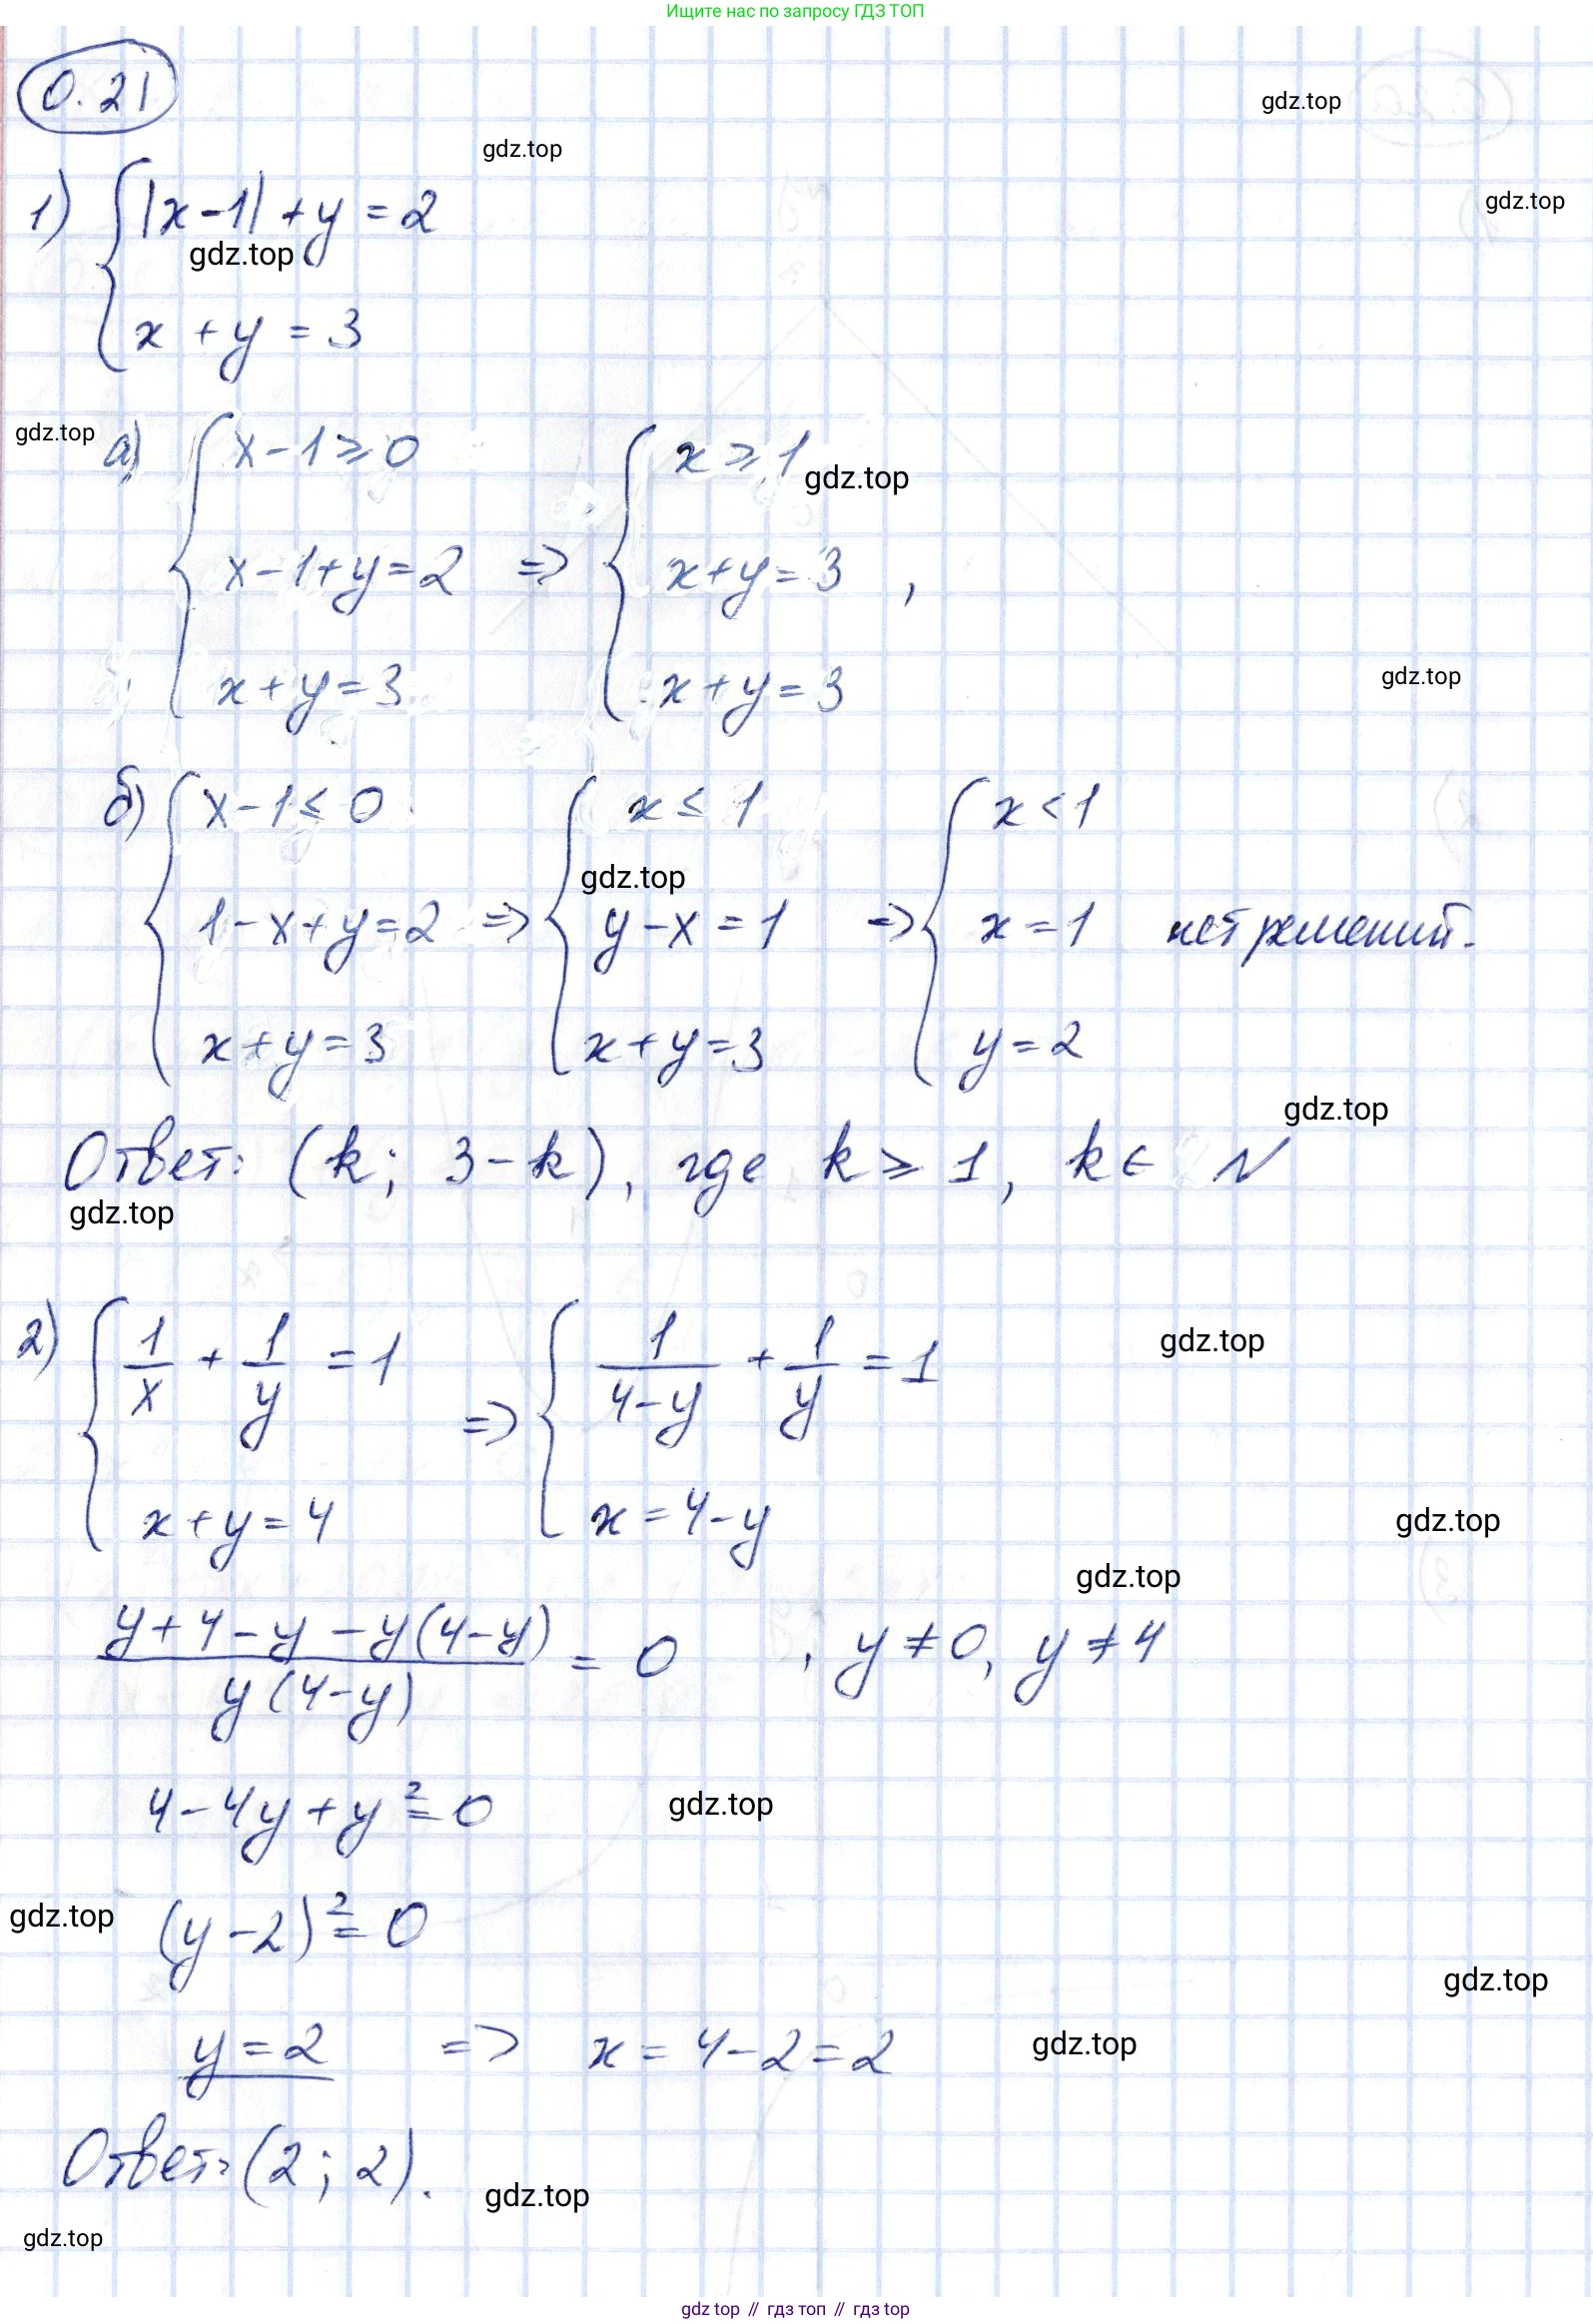 Ищите нас по запросу ГДЗ ТОП
0.21
gdz.top
gdz.top
gdz.top
1) { |x-1| + y = 2
gdz.top
x + y = 3
gdz.top
а) { x-1 ≥ 0 { x ≥ 1
gdz.top
x-1+y=2 => x+y=3 ,
x+y=3 x+y=3
gdz.top
б) { x-1 ≤ 0 { x ≤ 1 { x < 1
gdz.top
1-x+y=2 => y-x=1 => x=1 нет решений.
x+y=3 x+y=3 y=2
gdz.top
Ответ: (k; 3-k), где k ≥ 1, k ∈ N
gdz.top
2) { 1/x + 1/y = 1 => { 1/(4-y) + 1/y = 1
gdz.top
x+y=4 x=4-y
gdz.top
gdz.top
(y+4-y-y(4-y))/(y(4-y)) = 0 , y ≠ 0, y ≠ 4
4-4y+y²=0
gdz.top
gdz.top
(y-2)²=0
gdz.top
y=2 => x=4-2=2
gdz.top
Ответ: (2; 2).
gdz.top
gdz.top
gdz top // гдз топ // gdz top